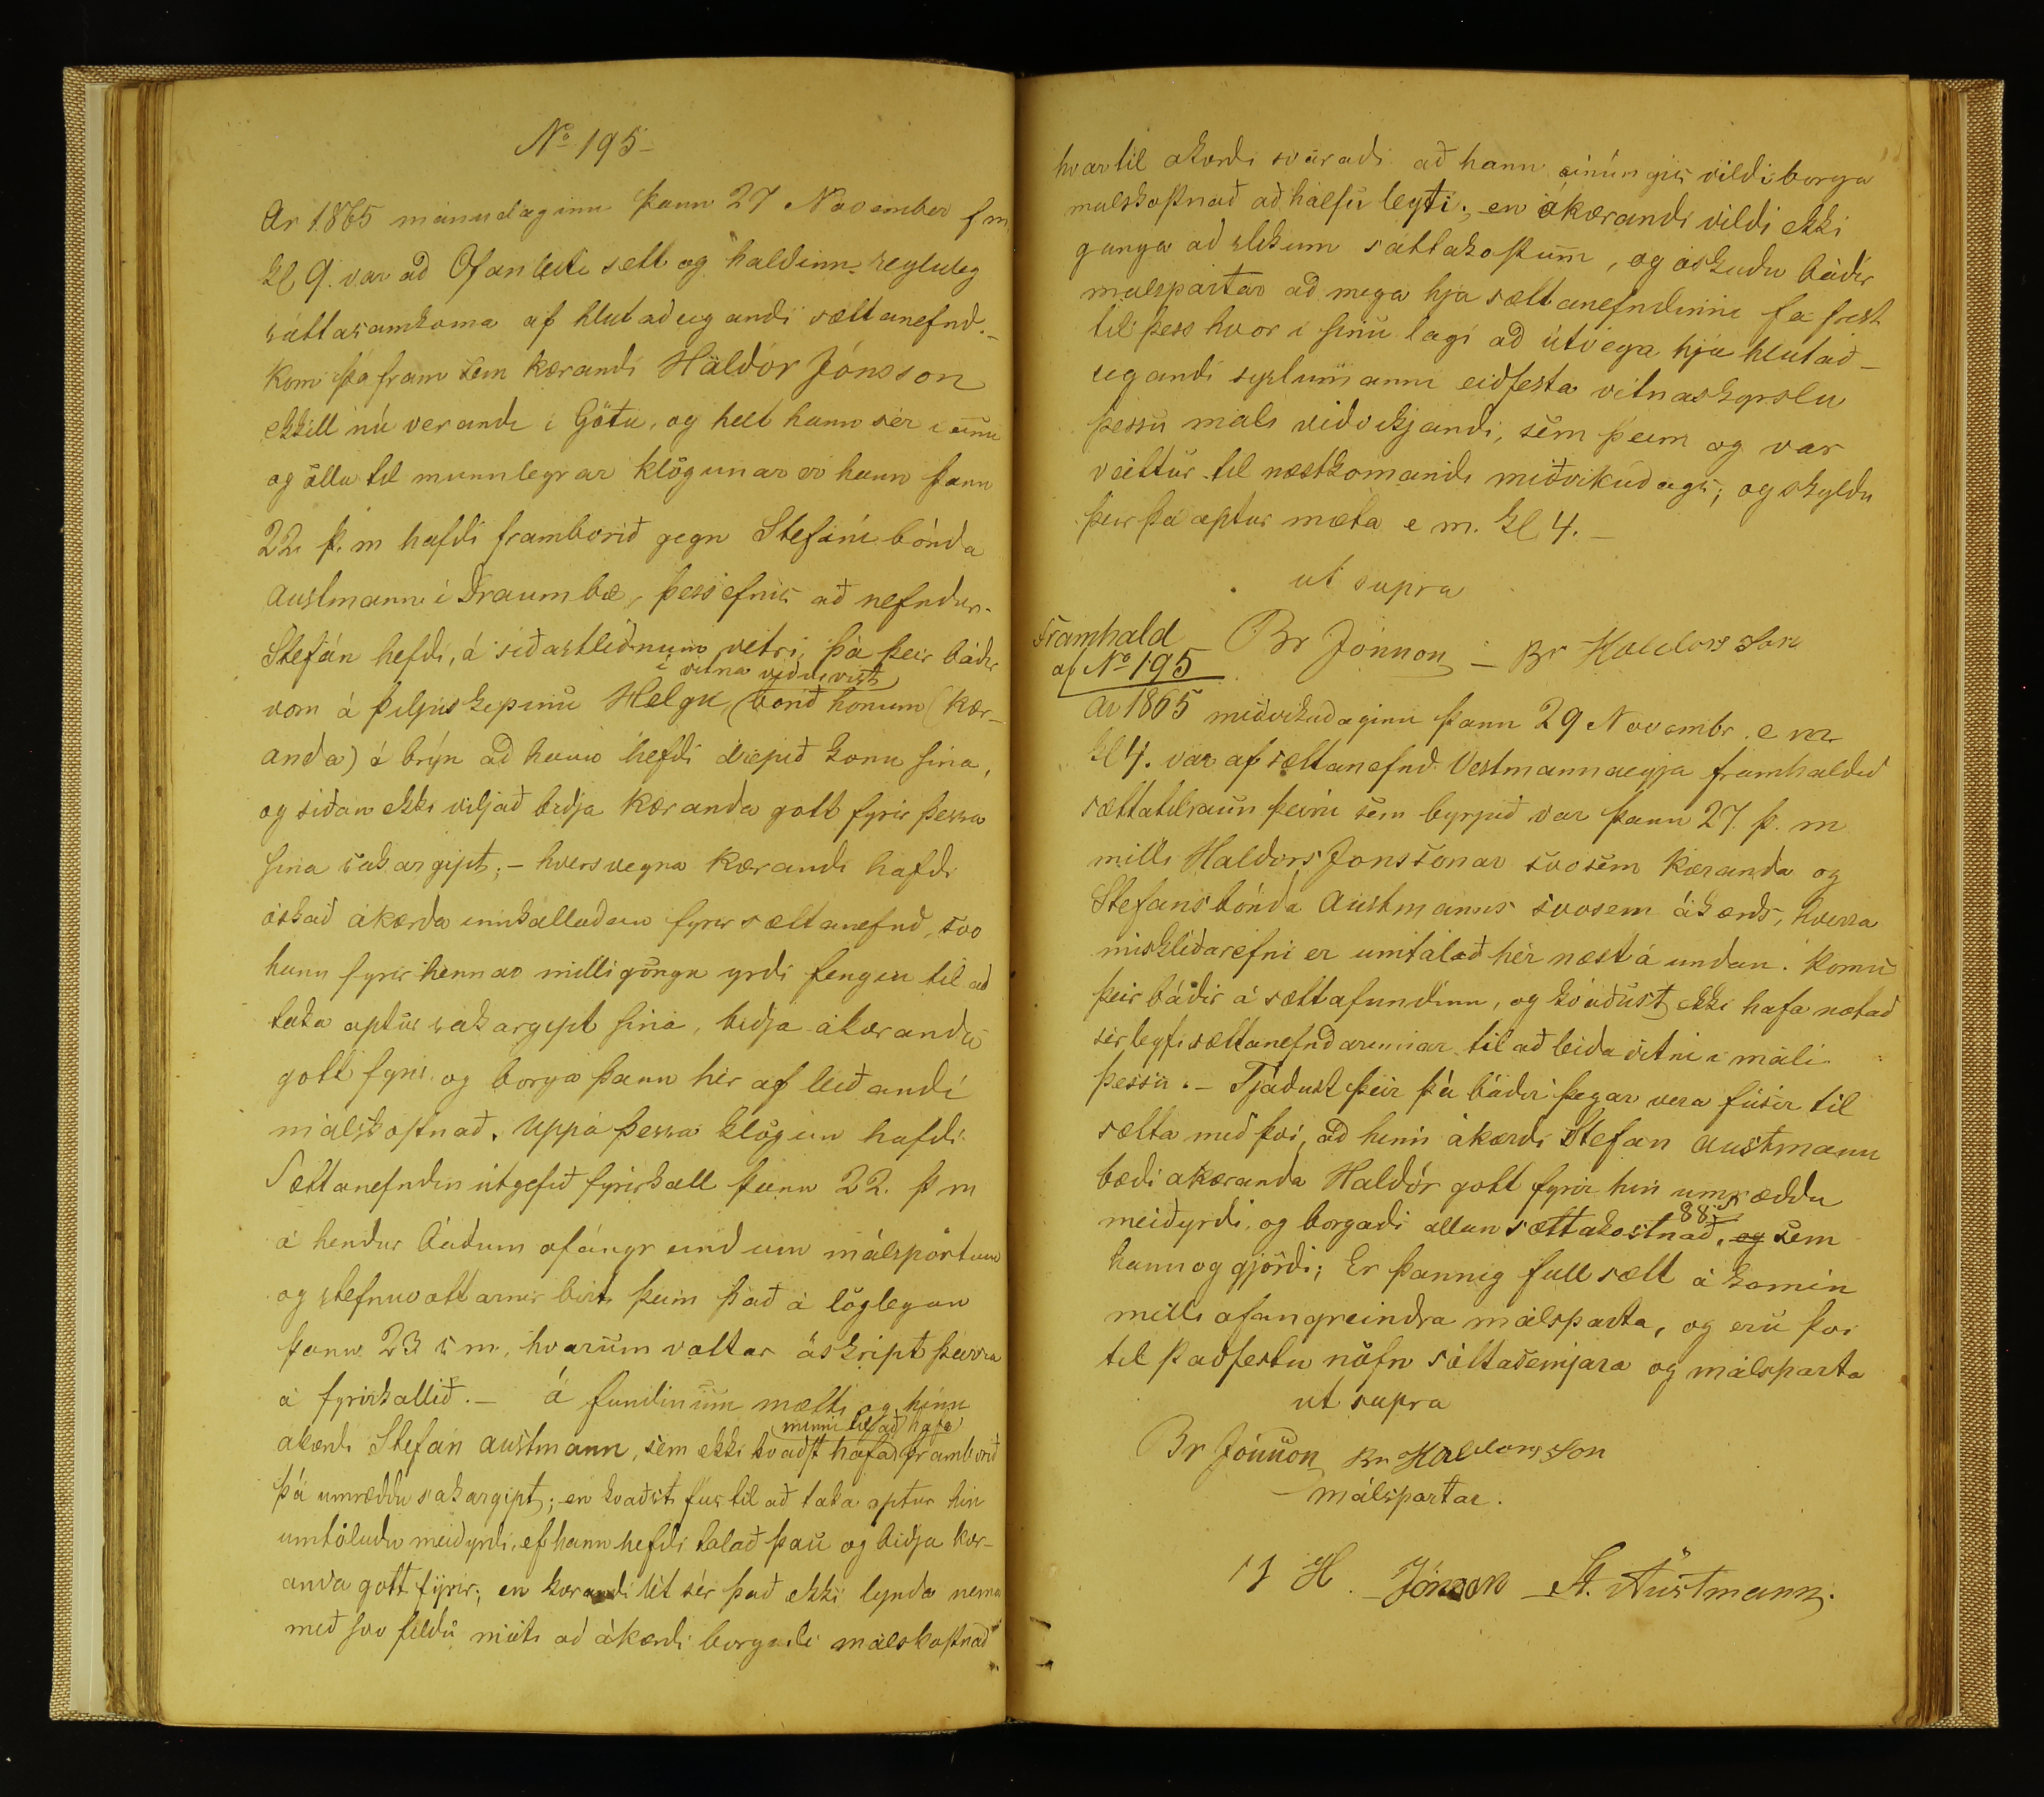 No 195-
Ar 1865 mánudaginn þann 27 November fm
kl 9. var að Ofanleiti sett og haldinn regluleg
sáttasamkoma af hlutadeigandi sættanefnd.-
Kom þá fram sem kærandi Háldór Jónsson
ekkill nú verandi i Götu, og hélt hann sér i einu
og öllu til munnlegrar klögunar er hann þann
22 þ. m hafdi framborið gegn Stefáni bónda
Austmanni i Draumbæ, þess efnis að nefndur
Stefán hefdi, á siðastliðnum vetri, þá þeir báðir
i vitna viðurvist
voru á þiljuskipinu Helgu, borið honum (kær-
anda) á brýn að hann hefdi drepið konu sina,
og siðan ekki viljað biðja kæranda gott fyrir þessa
sina sakargipt; - hversvegna kærandi hafdi
óskað ákærda innkalladan fyrir sættanefnd, svo
hann fyrir hennar milligöngu yrdi fengin til að
taka aptur sakargipt sina, bidja ákæranda
gott fyrir og borga þann hér af leiðandi
málskostnað. Uppá þessa klögun hafdi
Sættanefndin útgefið fyrirkall þann 22. þ m
á hendur báðum ofangreindum málspörtum
og stefnuvottarnir birt þeim það á löglegan
þann 23 s m, hvarum vottar áskript þeirra
á fyrirkallið. - Á fundinum mætti og hinn
minni til að hafa
ákærdi Stefán Austmann, sem ekki kvaðst hafað framborið
þá umræddu sakargipt; en kvaðst fús til að taka aptur hin
umtöludu meidyrdi, ef hann hefdi talað þau og biðja kær-
anda gott fyrir; en kærandi lét sér það ekki lynda nema
með svo feldu móti að ákærdi borgadi málskostnað
hvartil ákærdi svaradi að hann einúngis vildi borga
málskostnað að hálfu leyti; en ákærandi vildi ekki
ganga að slikum sáttakostum, og óskudu báðir
malspartar að mega hjá sættanefndinni fá frest
til þess hvor i sinu lagi að útvega hjá hlutað-
eigandi syslumanni eiðfesta vitnaskyrslu
þessu máli viðvikjandi, sem þeim og var
veittur til næstkomandi miðvikudags; og skyldu
þeir þá aptur mæta e m. kl 4. -
ut supra
Br Jónsson - Br Halldorsson
Framhald
af No 195
Ar 1865 miðvikudaginn þann 29 Novembr. e m
kl 4. var af sættanefnd Vestmannaeyja framhaldið
sættatilraun þeirri sem byrjuð var þann 27. þ. m
milli Haldórs Jónssonar svosem kæranda og
Stefáns bónda Austmanns svosem ákærds, hverra
misklíðarefni er umtalað hér næst á undan. Komu
þeir báðir á sættafundinn, og kváðust ekki hafa notað
sér leyfi sættanefndarinnar til að leida vitni i máli
þessu. - Tjáðust þeir þá báðir þegar vera fúsir til
sætta með því, að hinn ákærdi Stefán Austmann
bædi ákæranda Haldór gott fyrir hin umræddu
88 s
meiðyrdi, og borgadi allan sættakostnað, og sem
hann og gjördi; Er þannig full sætt á komin
milli ofangreindra málsparta, og eru því
til staðfestu nöfn sáttasemjara og málsparta
ut supra
Br Jónsson Br Halldorsson
málspartar.
H. Jónsson - St. Austmann.